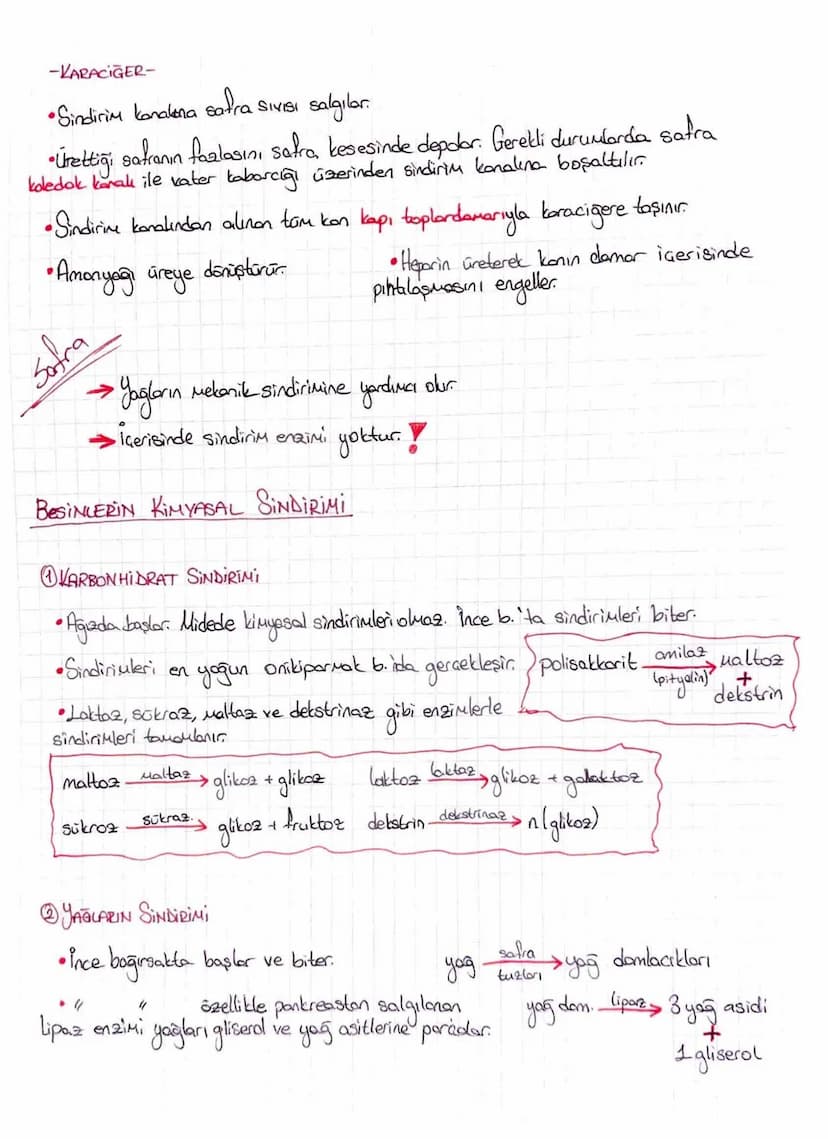 -KARACİĞER-
•Sindirim kanalına safra sıvısı salgılar.
•Ürettiği safranın fazlasını safra kesesinde depolar. Gerekli durumlarda safra
koledok kanalı ile vater kabarcığı üzerinden sindirim kanalına boşaltılır.
•Sindirim kanalından alınan tüm kan kapı toplardamarıyla karaciğere taşınır.
•Amonyağı üreye dönüştürür.
•Heparin üreterek kanın damar içerisinde
pıhtılaşmasını engeller.
Safra
→ Yağların mekanik sindirimine yardımcı olur.
→ İçerisinde sindirim enzimi yoktur. !
BESİNLERİN KİMYASAL SİNDİRİMİ
① KARBONHİDRAT SİNDİRİMİ
•Ağızda başlar. Midede kimyasal sindirimleri olmaz. İnce b.'ta sindirimleri biter.
•Sindirimleri en yoğun onikiparmak b.'da gerçekleşir.
polisakkarit amilaz (pityalin) → maltoz
+
dekstrin
•Laktaz, sükraz, maltaz ve dekstrinaz gibi enzimlerle
sindirimleri tamamlanır.
maltoz maltaz → glikoz + glikoz laktoz laktaz → glikoz + galaktoz
sükroz sükraz. → glikoz + fruktoz dekstrin dekstrinaz → n(glikoz)
② YAĞLARIN SİNDİRİMİ
•İnce bağırsakta başlar ve biter.
yağ safra tuzları → yağ damlacıkları
• " " özellikle pankreastan salgılanan
Lipaz enzimi yağları gliserol ve yağ asitlerine parçalar.
yağ dam. lipaz → 3 yağ asidi
+
1 gliserol